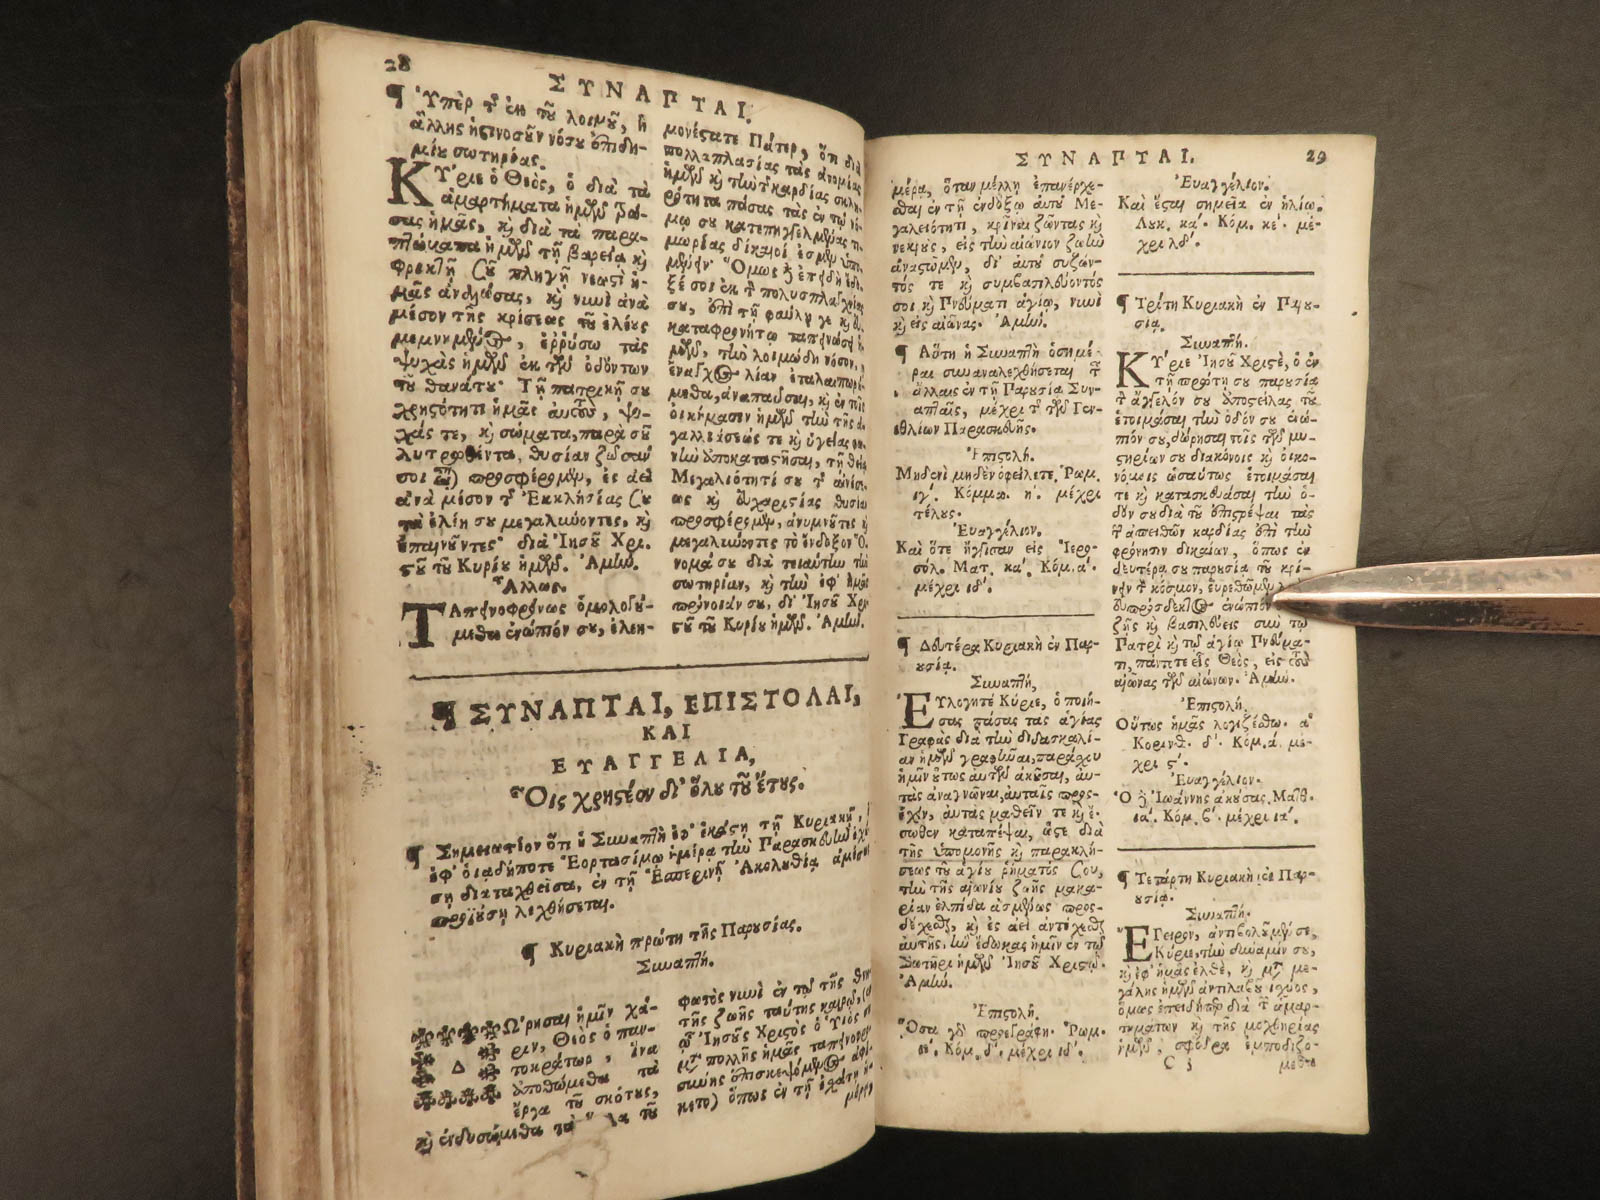 28
ΣΥΝΑΠΤΑΙ.
¶ Ὑπὲρ τ͂ ἐκ τοῦ λοιμοῦ, ἢ
ἄλλης ἡςινοσοῦν νόσου ἐπιδη-
μίου σωτηρίας.
ΚΎριε ὁ Θεὸς, ὁ διὰ τὰ
ἁμαρτήματα ἡμῶν
σας ἡμᾶς, καὶ διὰ τὰ παρα-
πτώματα ἡμῶν τῇ βαρείᾳ καὶ
φρικτῇ σοῦ πληγῇ νεωςὶ ἡ-
μᾶς, καὶ νιωὶ ἀνὰ
μέσον τῆς κρίσεως τοῦ ἐλέους
μεμνημένος, ἐῤῥύσω τὰς
ψυχὰς ἡμῶν ἐκ τῶν ὀδόντων
τοῦ θανάτου· Τῇ πατρικῇ σου
χρηςότητι ἡμᾶς αὐτοὺς, ψυ-
χάς τε, καὶ σώματα, παρὰ σοῦ
λυτρωθέντα, θυσίαν ζῶσαν
σοι προσφέρομεν, ἐς ἀεὶ
ἀνὰ μέσον τ͂ Ἐκκλησίας σου
τὰ ἐλέη σου μεγαλύνοντες, καὶ
ἐπαινοῦντες· διὰ Ἰησοῦ Χρι-
ςοῦ τοῦ Κυρίου ἡμῶν. Ἀμήν.
Ἄλλως.
ΤΑπεινοφρόνως ὁμολογού-
μεθα ἐνώπιόν σου, ἐλεη-
μονέςατε Πάτερ, ὅτι διὰ
πολλαπλασίας τὰς ἀνομίας
ἡμῶν καὶ τὴν τ͂ καρδίας σκλη-
ρότητα πάσας τὰς ἐν τῷ νό-
μῳ σου κατεπηγγελμένας τι-
μωρίας δίκαιοί ἐσμεν ὑπο-
Ὅμως ἐπειδὴ ἔδο-
ξέ σοι ἐκ τ͂ πολυσπλαγχνίας
σου, ἐπὶ τῇ φαύλῃ γε καὶ
καταφρονήτῳ ταπεινώσει ἡ-
μῶν, τὴν λοιμώδη νόσον,
λίαν ἐταλαιπωρού-
μεθα, ἀναπαῦσαι, καὶ ἐν τοῖς
οἰκήμασιν ἡμῶν τὴν τῆς ἀ-
γαλλιάσεώς τε καὶ ὑγείας φω-
νὴν ἀποκαταςῆσαι, τῇ θείᾳ
Μεγαλιότητί σου τ͂ αἰνέσε-
ως καὶ εὐχαριςίας θυσίαν
προσφέρομεν, ἀνυμνοῦντες καὶ
μεγαλύνοντες τὸ ἔνδοξον Ὄ-
νομά σου διὰ τοιαύτην τὴν
σωτηρίαν, καὶ τὴν ἐφ' ἡμᾶς
πρόνοιάν σου, δι' Ἰησοῦ Χρι-
ςοῦ τοῦ Κυρίου ἡμῶν. Ἀμήν.
¶ ΣΥΝΑΠΤΑΙ, ΕΠΙΣΤΟΛΑΙ,
ΚΑΙ
ΕΥΑΓΓΕΛΙΑ,
Οἷς χρηςέον δι' ὅλου τοῦ ἔτους.
¶ Σημειωτέον ὅτι ἡ Συναπτὴ ἐφ' ἑκάςῃ τῇ Κυριακῇ,
ἐφ' ὁιᾳδήποτε Ἑορτασίμῳ ἡμέρᾳ τὴν Παρασκευὴν
ση διαταχθεῖσα, ἐν τῇ Ἑσπερινῇ Ἀκολουθίᾳ ἀμέσως
προϊούσῃ λεχθήσεται.
¶ Κυριακὴ πρώτη τῆς Παρουσίας.
Συναπτή.
ΔΏρησαι ἡμῖν χά-
ριν, Θεὸς ὁ παν-
τοκράτωρ, ἵνα
ἀποθώμεθα τὰ
ἔργα τοῦ σκότους,
καὶ ἐνδυσώμεθα τὰ ὅπλα τοῦ
φωτὸς νιωὶ ἐν τῷ τῆς θνη-
τῆς ζωῆς ταύτης καιρῷ, (ἐν
ᾧ Ἰησοῦς Χριςὸς ὁ Ὑιὸς σου
μετὰ πολλῆς ἡμᾶς ταπεινοφρο-
σύνης ἐπισκεψόμενος ἀφί-
κετο) ὅπως ἐν τῇ ἐσχάτῃ ἡ-
μέρᾳ,
ΣΥΝΑΠΤΑΙ. 29
μέρᾳ, ὅταν μέλλῃ ἐπανέρχε-
σθαι ἐν τῇ ἐνδόξῳ αὐτοῦ Με-
γαλειότητι, κρῖναι ζῶντας καὶ
νεκροὺς, εἰς τὴν αἰώνιον ζωὴν
ἀναςῶμεν, δι' αὐτοῦ συζῶν-
τός τε καὶ συμβασιλεύοντός
σοι καὶ Πνεύματι ἁγίῳ, νιωὶ
καὶ εἰς αἰῶνας. Ἀμήν.
¶ Αὕτη ἡ Συναπτὴ ὁσημέ-
ραι συναναλεχθήσεται τ͂
ἄλλαις ἐν τῇ Παρουσίᾳ Συν-
απταῖς, μέχρι τ͂ τῶν Γεν-
εθλίων Παρασκευῆς.
Ἐπιςολή.
Μηδενὶ μηδὲν ὀφείλετε. Ῥωμ.
ιγ'. Κόμμα. η'. μέχρι
τέλους.
Ἐυαγγέλιον.
Καὶ ὅτε ἤγγισαν εἰς Ἱερο-
σόλ. Ματ. κα'. Κόμ. α'.
μέχρι ιδ'.
¶ Δευτέρα Κυριακὴ ἐν Παρ-
ουσίᾳ.
Συναπτή,
ΕΥλογητὲ Κύριε, ὁ ποιή-
σας πάσας τὰς ἁγίας
Γραφὰς διὰ τὴν διδασκαλί-
αν ἡμῶν γραφῆναι, παράσχου
ἡμῖν οὕτως αὐτῶν ἀκοῦσαι, αὐ-
τὰς ἀναγνῶναι, αὐταῖς προς-
έχειν, αὐτὰς μαθεῖν τε καὶ ἔ-
σωθεν καταπέψαι, ὥςε διὰ
τῆς ὑπομονῆς καὶ παρακλή-
σεως τοῦ ἁγίου ῥήματός σου,
τὴν τῆς αἰωνίου ζωῆς μακα-
ρίαν ἐλπίδα ἀσμένως προς-
δέχεσθαι, καὶ ἐς ἀεὶ ἀντέχεσθαι
αὐτῆς, ἣν ἔδωκας ἡμῖν ἐν τῷ
Σωτῆρι ἡμῶν Ἰησοῦ Χριςῷ.
Ἀμήν.
Ἐπιςολή.
Ὅσα γὰρ προεγράφη. Ῥωμ.
ιε'. Κόμ. δ'. μέχρι ιδ'.
Ἐυαγγέλιον.
Καὶ ἔςαι σημεῖα ἐν ἡλίῳ.
Λουκ. κα'. Κόμ. κε'. μέ-
χρι λδ'.
¶ Τρίτη Κυριακὴ ἐν Παρου-
σίᾳ.
Συναπτή.
ΚΎριε Ἰησοῦ Χριςὲ, ὁ ἐν
τῇ πρώτῃ σου παρουσίᾳ
τ͂ ἄγγελόν σου ἀποςείλας τοῦ
ἑτοιμάσαι τὴν ὁδόν σου ἐνώ-
πιόν σου, δώρησαι τοῖς τῶν μυ-
ςηρίων σου διακόνοις καὶ οἰκο-
νόμοις ὡσαύτως ἑτοιμάσαι
τε καὶ κατασκευάσαι τὴν ὁ-
δόν σου διὰ τοῦ ἐπιςρέψαι τὰς
τ͂ ἀπειθῶν καρδίας ἐπὶ τὴν
φρόνησιν δικαίων, ὅπως ἐν
δευτέρᾳ σου παρουσίᾳ τοῦ κρί-
νειν τ͂ κόσμον, εὑρεθῶμεν
εὐπρόσδεκτος ἐνώπιόν
ζῇς καὶ βασιλεύεις σὺν τῷ
Πατρὶ καὶ τῷ ἁγίῳ Πνεύμα-
τι, πάντοτε εἷς Θεὸς, εἰς τοὺς
αἰῶνας τῶν αἰώνων. Ἀμήν.
Ἐπιςολή.
Οὕτως ἡμᾶς λογιζέσθω. α'
Κορινθ. δ'. Κόμ. ά. μέ-
χρι ς'.
Ἐυαγγέλιον.
Ὁ δὲ Ἰωάννης ἀκούσας. Ματθ.
ια'. Κόμ. β'. μέχρι ια'.
¶ Τετάρτη Κυριακὴ ἐν Παρ-
ουσίᾳ.
Συναπτή.
ἜΓειρον, ἀντιβολοῦμέν σε,
Κύριε, τὴν δύναμίν σου,
καὶ ἐφ' ἡμᾶς ἐλθὲ, καὶ μετὰ με-
γάλης ἡμῶν ἀντιλαβοῦ ἰσχύος,
ὅπως ἐπειδήπερ διὰ τ͂ ἁμαρ-
τημάτων καὶ τῆς μοχθηρίας
ἡμῶν, σφόδρα ἐμποδιζό-
C 3 μεθα